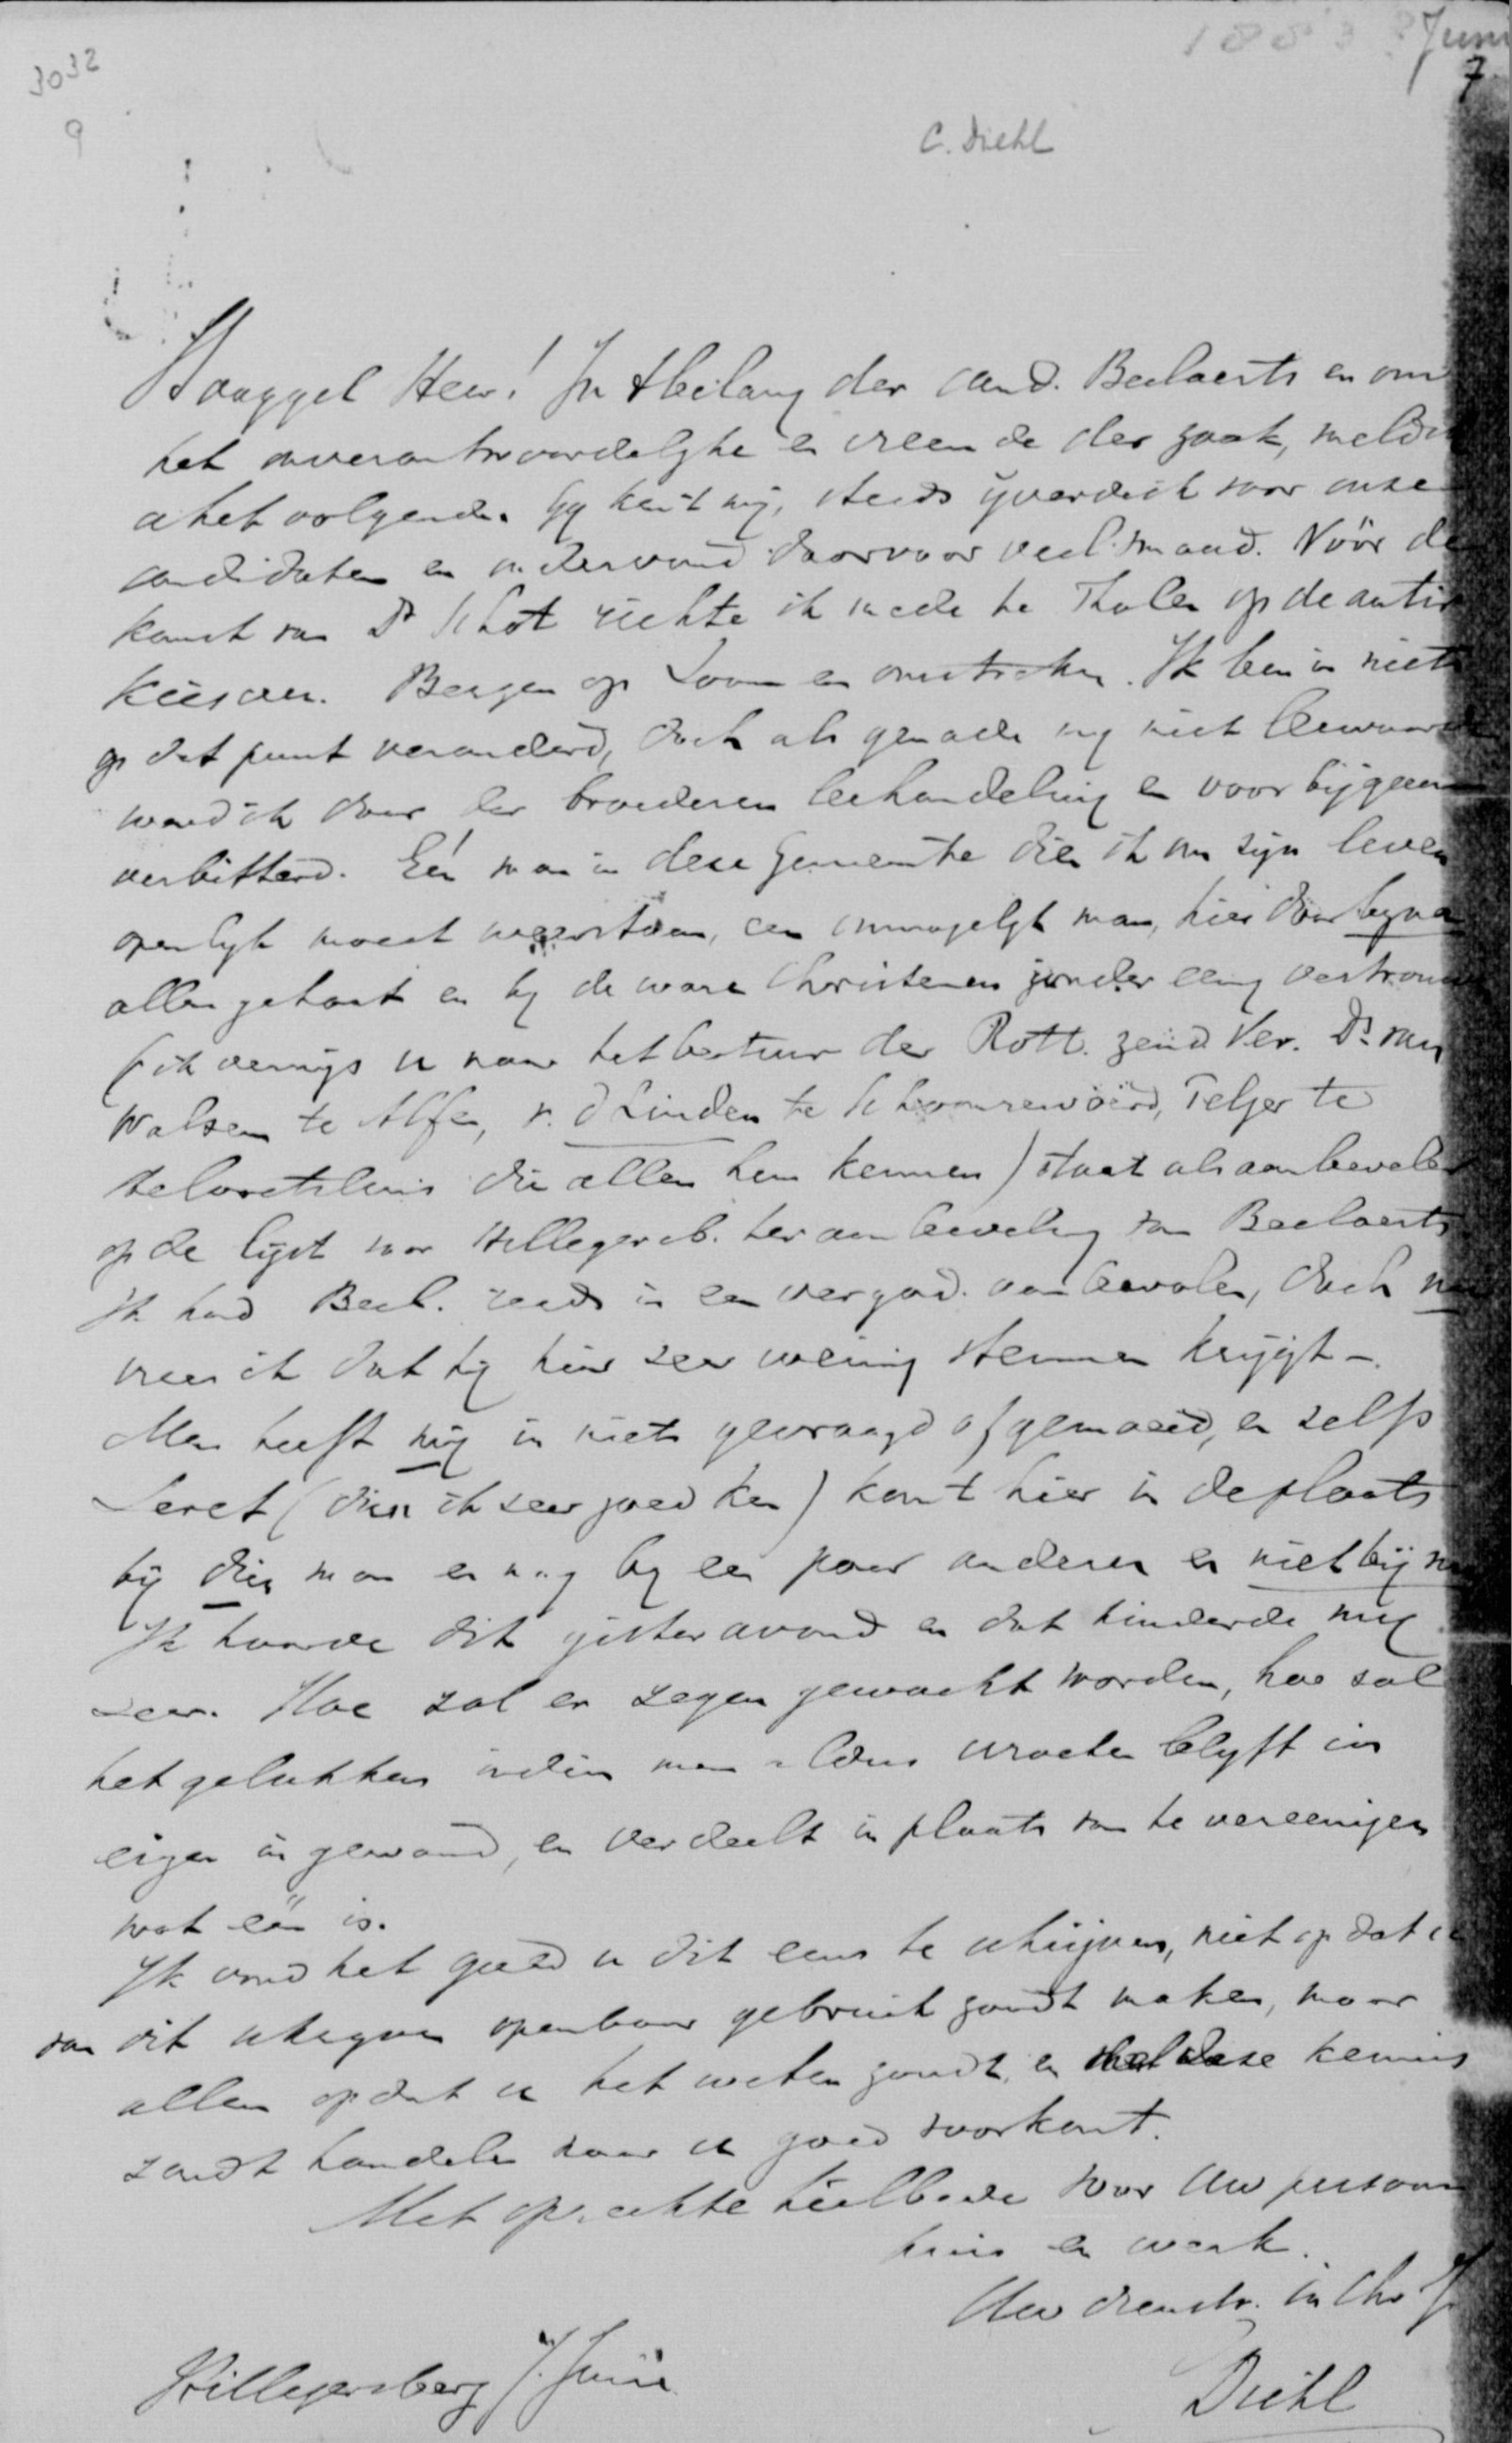 3032
9
1883 Juni
7
C. Diehl
Hooggel Heer! In 't belang der cand. Beelaerts en om
het onverantwoordelyke en vreemde der zaak, meld ik
u het volgende. Gy kent mij, steeds yverde ik voor onze
candidaten en ondervond daarvoor veel smaad. Vóór de
komst van Ds Schot richtte ik mede te Tholen op de antir
kiesver. Bergen op Zoom en omstreken. Ik ben in niets
op dat punt veranderd, doch als genade my niet bewaarde
werd ik door der broederen behandeling en voorbijgaan
verbitterd. Eén man in deze Gemeente dien ik om zijn leven
openlyk moest weerstaan, een onmogelyk man, hier door byna
allen gehaat en by de ware Christenen zonder eenig vertrouwen
(ik verwijs u naar het bestuur der Rott. Zend. Ver. Ds van
Walsem te Alfen, v. d Linden te Schoonrewoerd, Felger te
Heloretsluis die allen hem kennen) staat als aanbeveler
op de lijst voor Hillegersb. ter aanbeveling van Beelaerts
Ik had Beel. reeds in een vergad. aanbevolen, doch nu
vrees ik dat hy hier zeer weinig stemmen krijgt –.
Men heeft mij in niets gevraagd of gemoeid, en zelfs
Seret (dien ik zeer goed ken) komt hier in de plaats
bij dien man en nog by een paar anderen en niet bij mij
Ik hoorde dit gisteravond en dat hinderde my
zeer. Hoe zal er zegen gewacht worden, hoe zal
het gelukken indien men aldus wroeten blyft in
eigen ingewand, en verdeelt in plaats van te vereenigen
wat één is.
Ik vond het goed u dit eens te schrijven, niet opdat u
van dit schryven openbaar gebruik zoudt maken, maar
alleen opdat u het weten zoudt, en met deze kennis
zoudt handelen naar u goed voorkomt.
Met oprechte heilbede voor Uw persoon
huis en werk.
Uw dienstv. in Chr J
Hillegersberg 7 Junie
Diehl